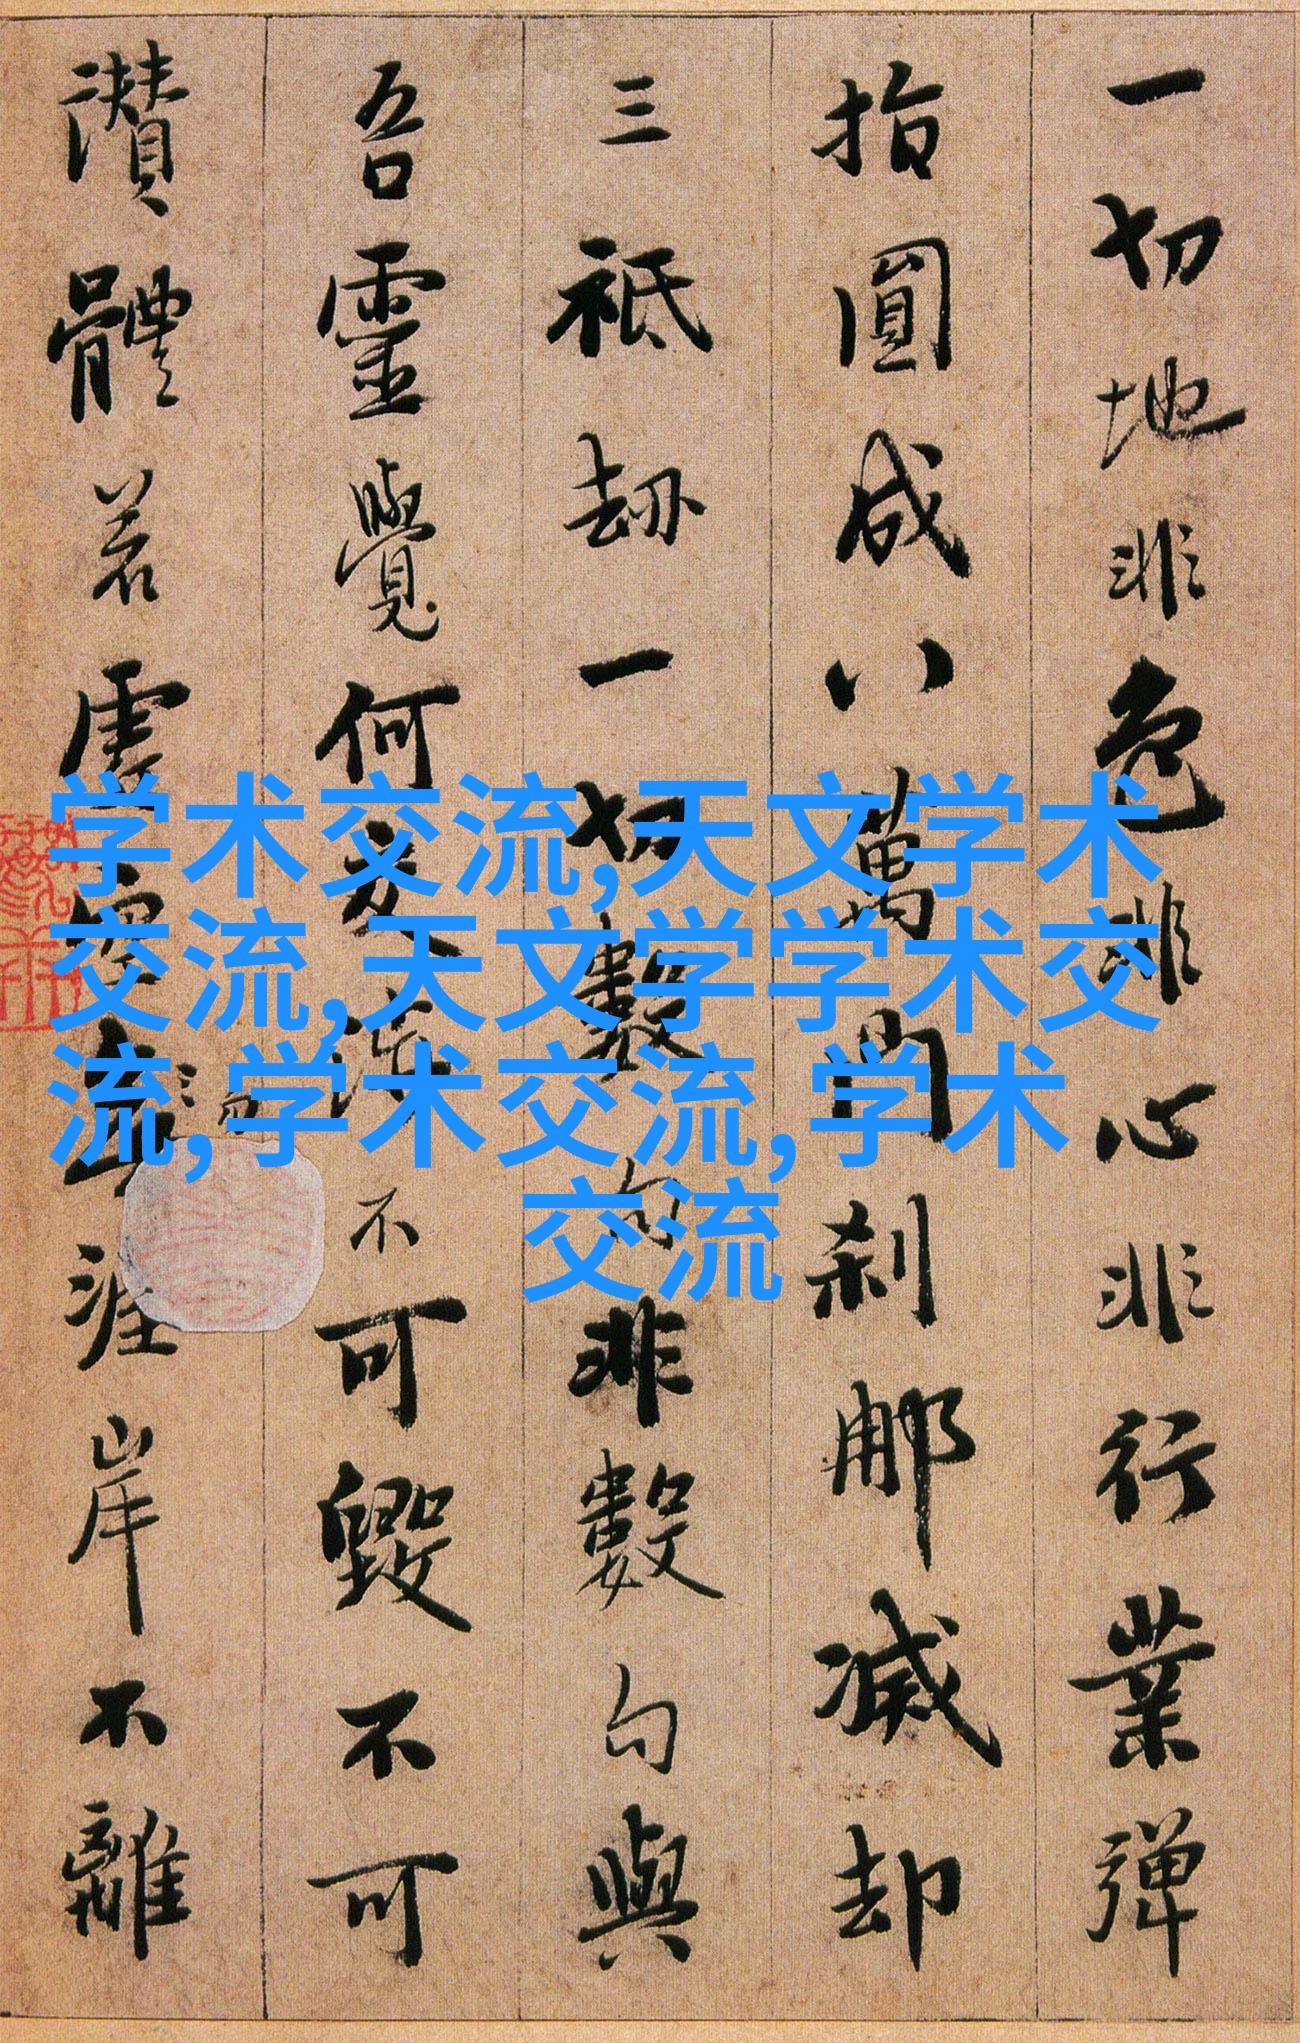 一切地非色非心非行業彈
指圓成八萬門刹那滅却
三祇劫一切數句非數句與
吾靈覺何交涉不可毀不可
讚體若虛空涯岸不離
学术交流,天文学术
交流,天文学学术交
流,学术交流,学术
交流